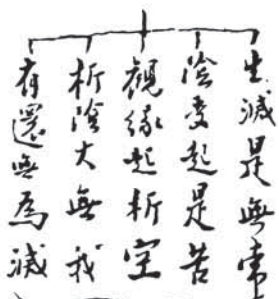 生滅是無常
陰受起是苦
觀緣起析空
析陰大無我
有還無為滅